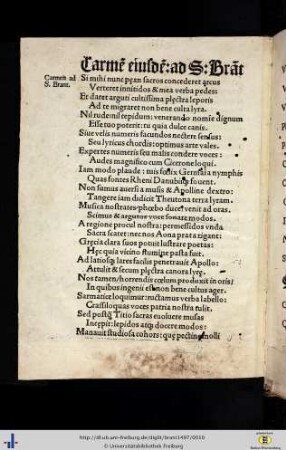 Carmē eiusdē: ad S: Brāt
Carmen ad
S. Brant.
Si mihi nunc pean sacros concederet arcus
Verteret innitidos & mea verba pedes:
Et daret arguti cultissima plectra leporis
Ad te migraret non bene culta lyra.
Nil rudeno tepidum: venerando nomie dignum
Esse tuo poterit: tu quia dulce canis.
Siue velis numeris facundos nectere sensus:
Seu lyricus chordis: optimus arte vales.
Expertes numeri seu malis condere voces:
Audes magnifico cum Cicerone loqui.
Iam modo plaude: mis foelix Germāia nymphis
Quas fontes Rheni Danubiusq; fouent.
Non sumus auersi a musis & Apolline dextro:
Tangere iam didicit Theutona terra lyram.
Musica nostrates: phœbo duce: venit ad oras.
Scimus & argutos voce sonare modos.
A regione procul nostra: permessidos vnda
Sacra scatet: nec nos Aona prata rigant:
Grecia clara suos potuit lustrare poetas:
Hęc quia vicino flumine pasta fuit.
Ad latiosq; lares facilis penetrauit Apollo:
Attulit & secum plectra canora lyrę.
Nos tamen/horrendis coelum produxit in oris/
In quibus ingenii est non bene cultus ager.
Sarmatice loquimur: iactamus verba labello:
Crassiloquas voces patria nostra tulit.
Sed postq̄ Titio sacras euoluere musas
Incepit: lepidos atq; docere modos:
Manauit studiosa cohors: que pectine molli
http://dl.ub.uni-freiburg.de/diglit/brant1497/0050
© Universitätsbibliothek Freiburg